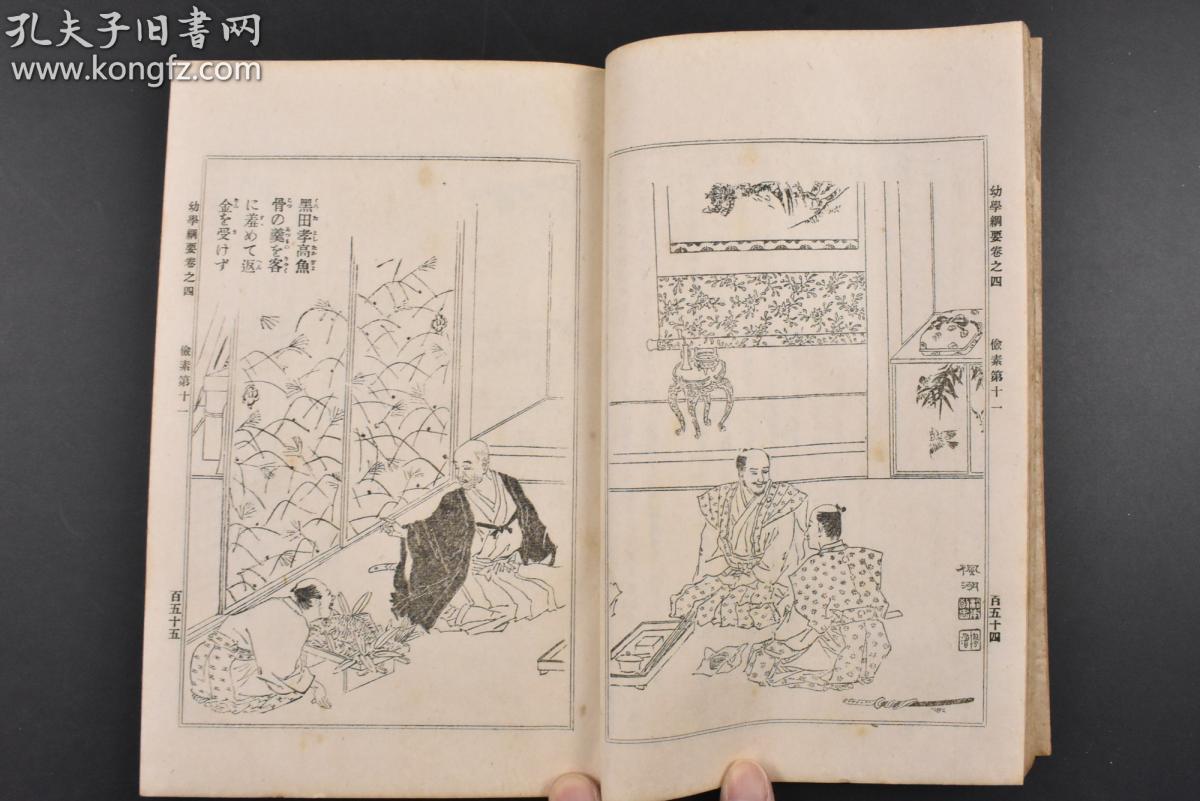 孔夫子旧书网
www.kongfz.com
幼學綱要卷之四
儉素第十一
百五十四
楓湖
黑田孝高魚
骨の羹を客
に羞めて返
金を受けず
幼學綱要卷之四
儉素第十一
百五十五